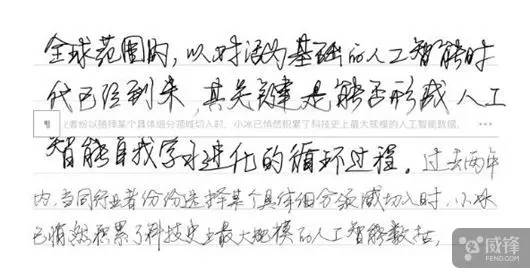 全球范围内，以对话为基础的人工智能时
代已经到来，其关键是能否形成人工
者纷以随择某个具体细分范城切入时，小冰已悄然积累了科技史上最大规模的人工智能数据，
智能自我学习进化的循环过程。过去两年
内，当同行业者纷纷选择某个具体细分领域切入时，小冰
已悄然积累了科技史上最大规模的人工智能数据，
威锋
FENG.COM